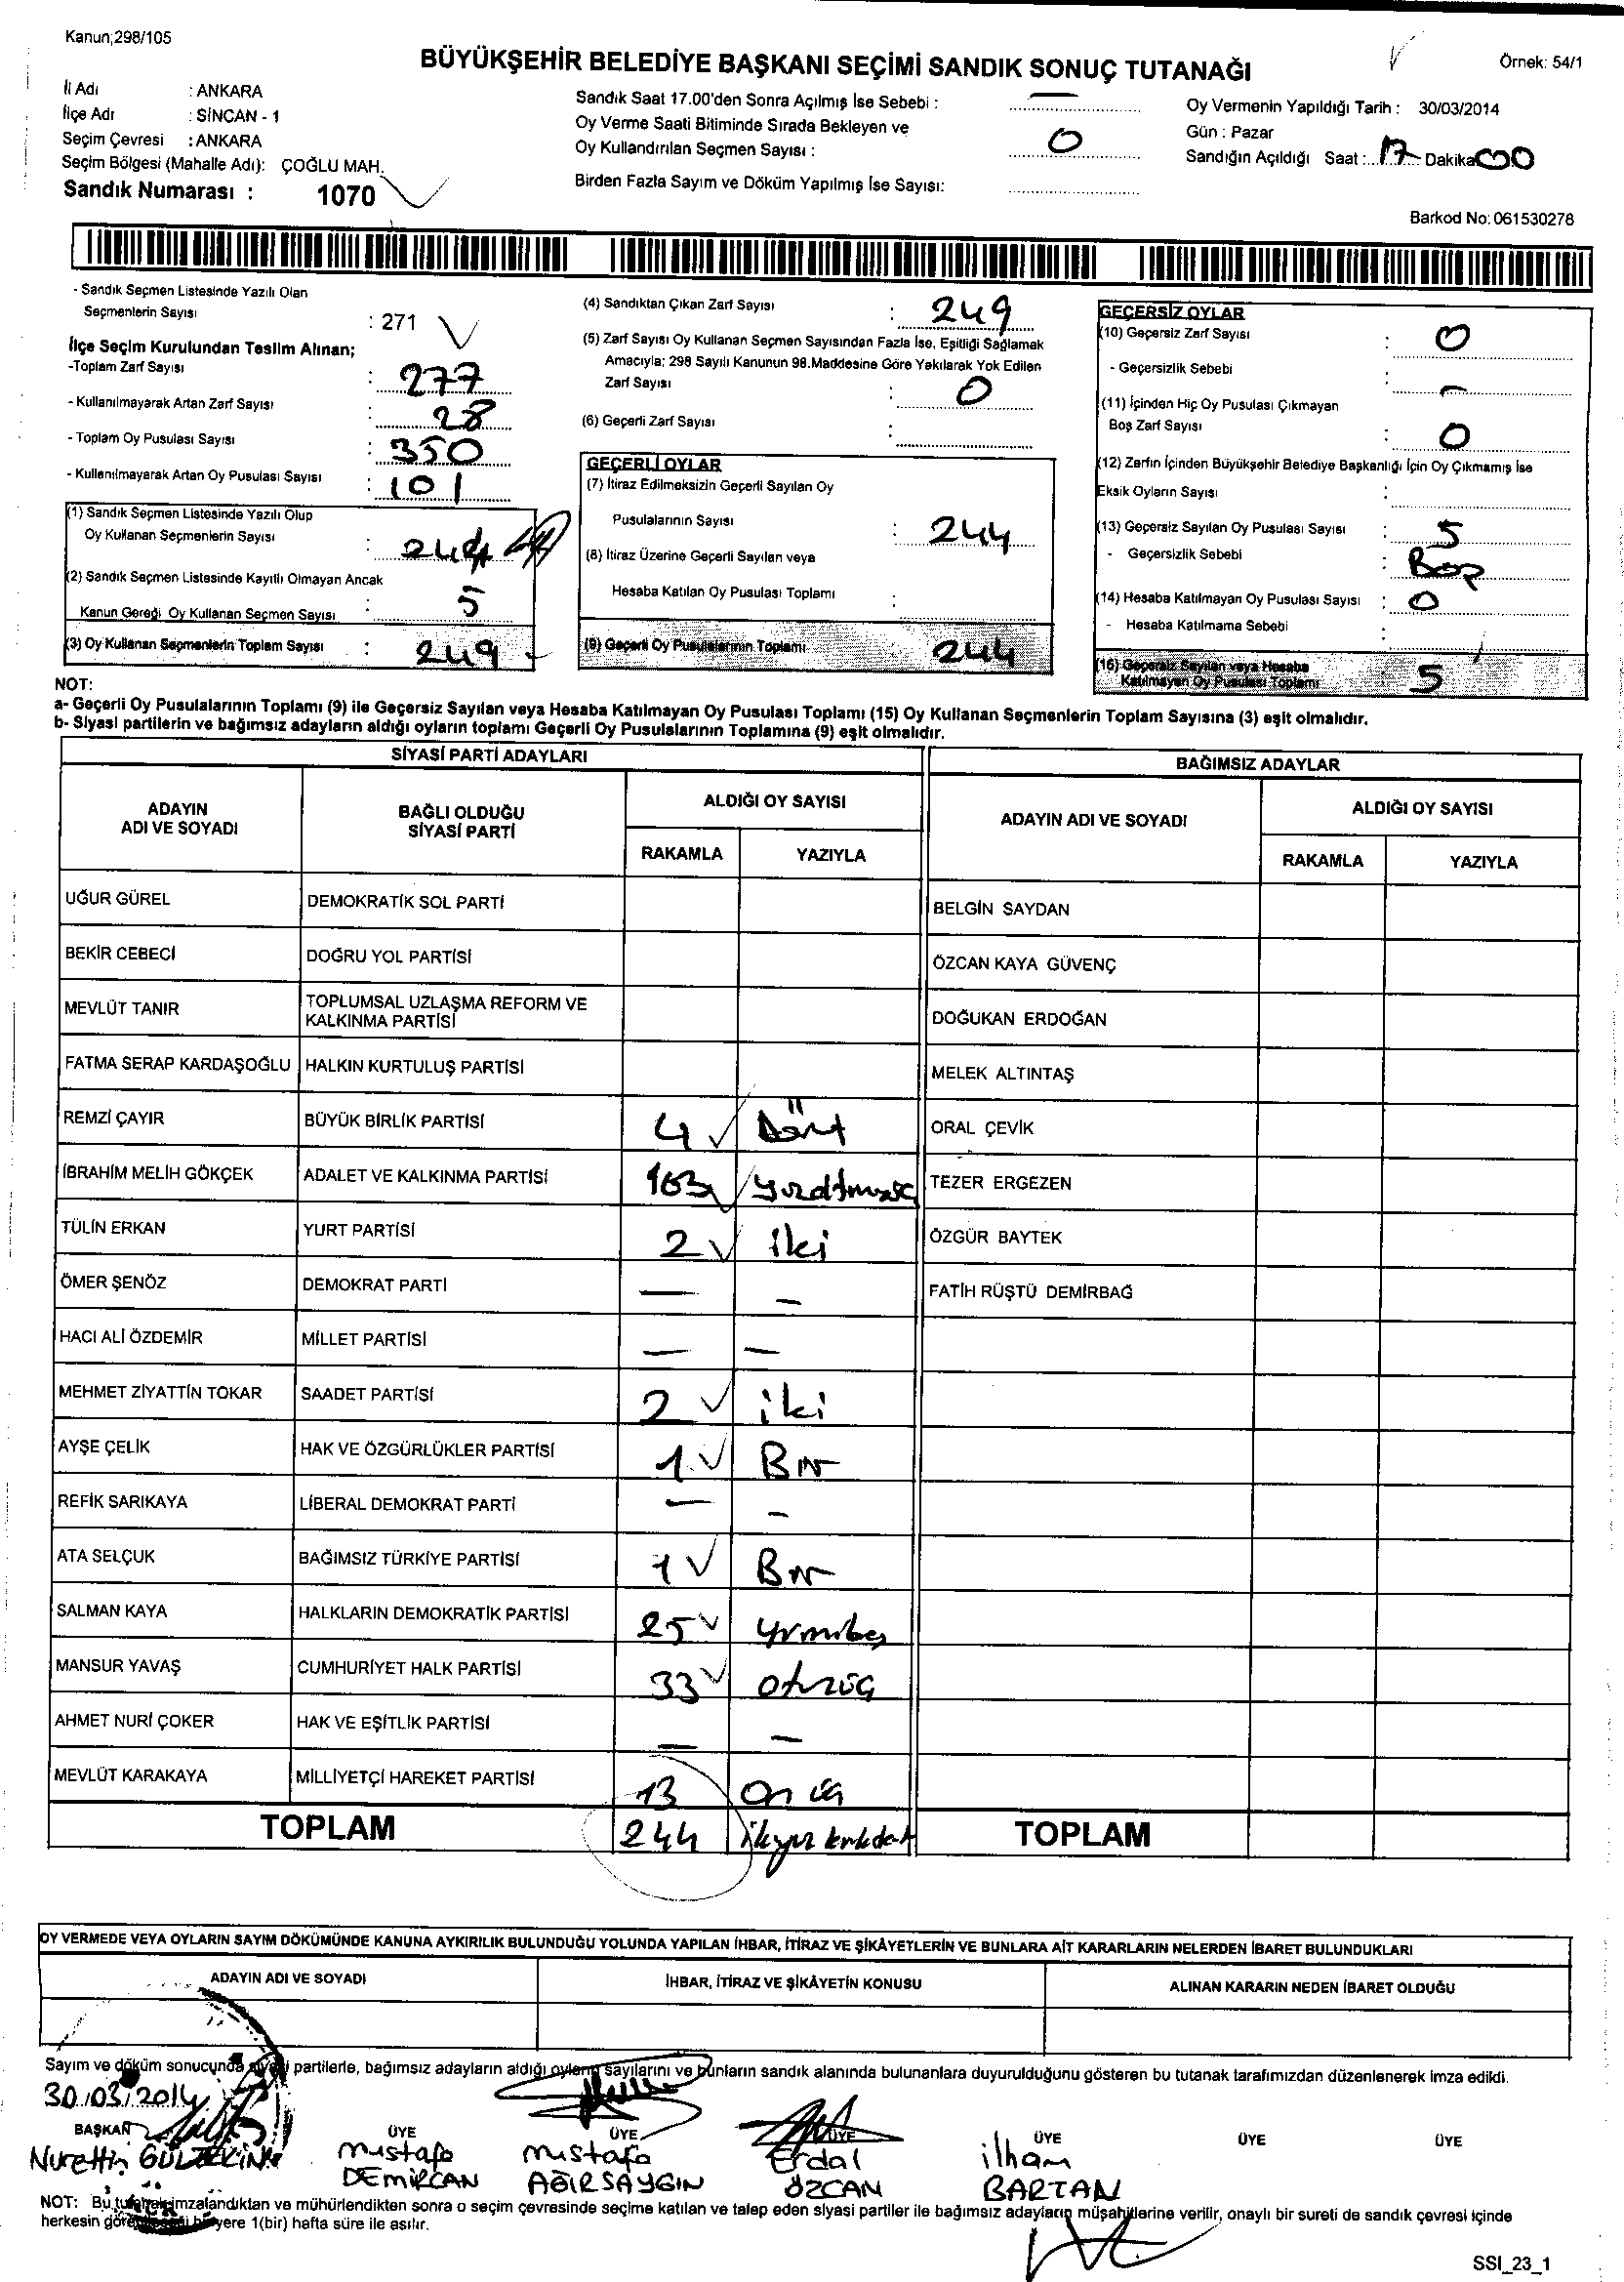 Kanun;298/105
BÜYÜKŞEHİR BELEDİYE BAŞKANI SEÇİMİ SANDIK SONUÇ TUTANAĞI
Örnek: 54/1
İl Adı : ANKARA
İlçe Adı : SİNCAN - 1
Seçim Çevresi : ANKARA
Seçim Bölgesi (Mahalle Adı): ÇOĞLU MAH.
Sandık Numarası : 1070
Sandık Saat 17.00'den Sonra Açılmış İse Sebebi : —
Oy Verme Saati Bitiminde Sırada Bekleyen ve
Oy Kullandırılan Seçmen Sayısı : 0
Birden Fazla Sayım ve Döküm Yapılmış İse Sayısı:
Oy Vermenin Yapıldığı Tarih : 30/03/2014
Gün : Pazar
Sandığın Açıldığı Saat : 17 Dakika 00
Barkod No: 061530278
- Sandık Seçmen Listesinde Yazılı Olan
Seçmenlerin Sayısı : 271
İlçe Seçim Kurulundan Teslim Alınan;
-Toplam Zarf Sayısı : 277
- Kullanılmayarak Artan Zarf Sayısı : 28
- Toplam Oy Pusulası Sayısı : 350
- Kullanılmayarak Artan Oy Pusulası Sayısı : 101
(1) Sandık Seçmen Listesinde Yazılı Olup
Oy Kullanan Seçmenlerin Sayısı : 244
(2) Sandık Seçmen Listesinde Kayıtlı Olmayan Ancak
Kanun Gereği Oy Kullanan Seçmen Sayısı : 5
(3) Oy Kullanan Seçmenlerin Toplam Sayısı : 249
(4) Sandıktan Çıkan Zarf Sayısı : 249
(5) Zarf Sayısı Oy Kullanan Seçmen Sayısından Fazla İse, Eşitliği Sağlamak
Amacıyla; 298 Sayılı Kanunun 98.Maddesine Göre Yakılarak Yok Edilen
Zarf Sayısı : 0
(6) Geçerli Zarf Sayısı :
GEÇERLİ OYLAR
(7) İtiraz Edilmeksizin Geçerli Sayılan Oy
Pusulalarının Sayısı : 244
(8) İtiraz Üzerine Geçerli Sayılan veya
Hesaba Katılan Oy Pusulası Toplamı :
(9) Geçerli Oy Pusulalarının Toplamı : 244
GEÇERSİZ OYLAR
(10) Geçersiz Zarf Sayısı : 0
- Geçersizlik Sebebi : —
(11) İçinden Hiç Oy Pusulası Çıkmayan
Boş Zarf Sayısı : 0
(12) Zarfın İçinden Büyükşehir Belediye Başkanlığı İçin Oy Çıkmamış İse
Eksik Oyların Sayısı :
(13) Geçersiz Sayılan Oy Pusulası Sayısı : 5
- Geçersizlik Sebebi : Boş
(14) Hesaba Katılmayan Oy Pusulası Sayısı : 0
- Hesaba Katılmama Sebebi :
(15) Geçersiz Sayılan veya Hesaba
Katılmayan Oy Pusulası Toplamı 5
NOT:
a- Geçerli Oy Pusulalarının Toplamı (9) ile Geçersiz Sayılan veya Hesaba Katılmayan Oy Pusulası Toplamı (15) Oy Kullanan Seçmenlerin Toplam Sayısına (3) eşit olmalıdır.
b- Siyasi partilerin ve bağımsız adayların aldığı oyların toplamı Geçerli Oy Pusulalarının Toplamına (9) eşit olmalıdır.
SİYASİ PARTİ ADAYLARI
ADAYIN ADI VE SOYADI BAĞLI OLDUĞU SİYASİ PARTİ ALDIĞI OY SAYISI
RAKAMLA YAZIYLA
UĞUR GÜREL DEMOKRATİK SOL PARTİ
BEKİR CEBECİ DOĞRU YOL PARTİSİ
MEVLÜT TANIR TOPLUMSAL UZLAŞMA REFORM VE KALKINMA PARTİSİ
FATMA SERAP KARDAŞOĞLU HALKIN KURTULUŞ PARTİSİ
REMZİ ÇAYIR BÜYÜK BİRLİK PARTİSİ 4 Dört
İBRAHİM MELİH GÖKÇEK ADALET VE KALKINMA PARTİSİ 163
TÜLİN ERKAN YURT PARTİSİ 2 iki
ÖMER ŞENÖZ DEMOKRAT PARTİ — —
HACI ALİ ÖZDEMİR MİLLET PARTİSİ — —
MEHMET ZİYATTİN TOKAR SAADET PARTİSİ 2 iki
AYŞE ÇELİK HAK VE ÖZGÜRLÜKLER PARTİSİ 1 Bir
REFİK SARIKAYA LİBERAL DEMOKRAT PARTİ — —
ATA SELÇUK BAĞIMSIZ TÜRKİYE PARTİSİ 1 Bir
SALMAN KAYA HALKLARIN DEMOKRATİK PARTİSİ 25 yirmibeş
MANSUR YAVAŞ CUMHURİYET HALK PARTİSİ 33 otuzüç
AHMET NURİ ÇOKER HAK VE EŞİTLİK PARTİSİ — —
MEVLÜT KARAKAYA MİLLİYETÇİ HAREKET PARTİSİ 13 On üç
TOPLAM 244 ikiyüz kırkdört
BAĞIMSIZ ADAYLAR
ADAYIN ADI VE SOYADI ALDIĞI OY SAYISI
RAKAMLA YAZIYLA
BELGİN SAYDAN
ÖZCAN KAYA GÜVENÇ
DOĞUKAN ERDOĞAN
MELEK ALTINTAŞ
ORAL ÇEVİK
TEZER ERGEZEN
ÖZGÜR BAYTEK
FATİH RÜŞTÜ DEMİRBAĞ
TOPLAM
OY VERMEDE VEYA OYLARIN SAYIM DÖKÜMÜNDE KANUNA AYKIRILIK BULUNDUĞU YOLUNDA YAPILAN İHBAR, İTİRAZ VE ŞİKÂYETLERİN VE BUNLARA AİT KARARLARIN NELERDEN İBARET BULUNDUKLARI
ADAYIN ADI VE SOYADI İHBAR, İTİRAZ VE ŞİKÂYETİN KONUSU ALINAN KARARIN NEDEN İBARET OLDUĞU
Sayım ve döküm sonucunda siyasi partilerle, bağımsız adayların aldığı oyların sayılarını ve bunların sandık alanında bulunanlara duyurulduğunu gösteren bu tutanak tarafımızdan düzenlenerek imza edildi.
30/03/2014
BAŞKAN ÜYE ÜYE ÜYE ÜYE ÜYE ÜYE
Nurettin GÜLTEKİN Mustafa DEMİRCAN Mustafa AĞIRSAYGIN Erdal ÖZCAN ilham BARTAN
NOT: Bu tutanak imzalandıktan ve mühürlendikten sonra o seçim çevresinde seçime katılan ve talep eden siyasi partiler ile bağımsız adayların müşahitlerine verilir, onaylı bir sureti de sandık çevresi içinde
herkesin görebileceği bir yere 1(bir) hafta süre ile asılır.
SSI_23_1